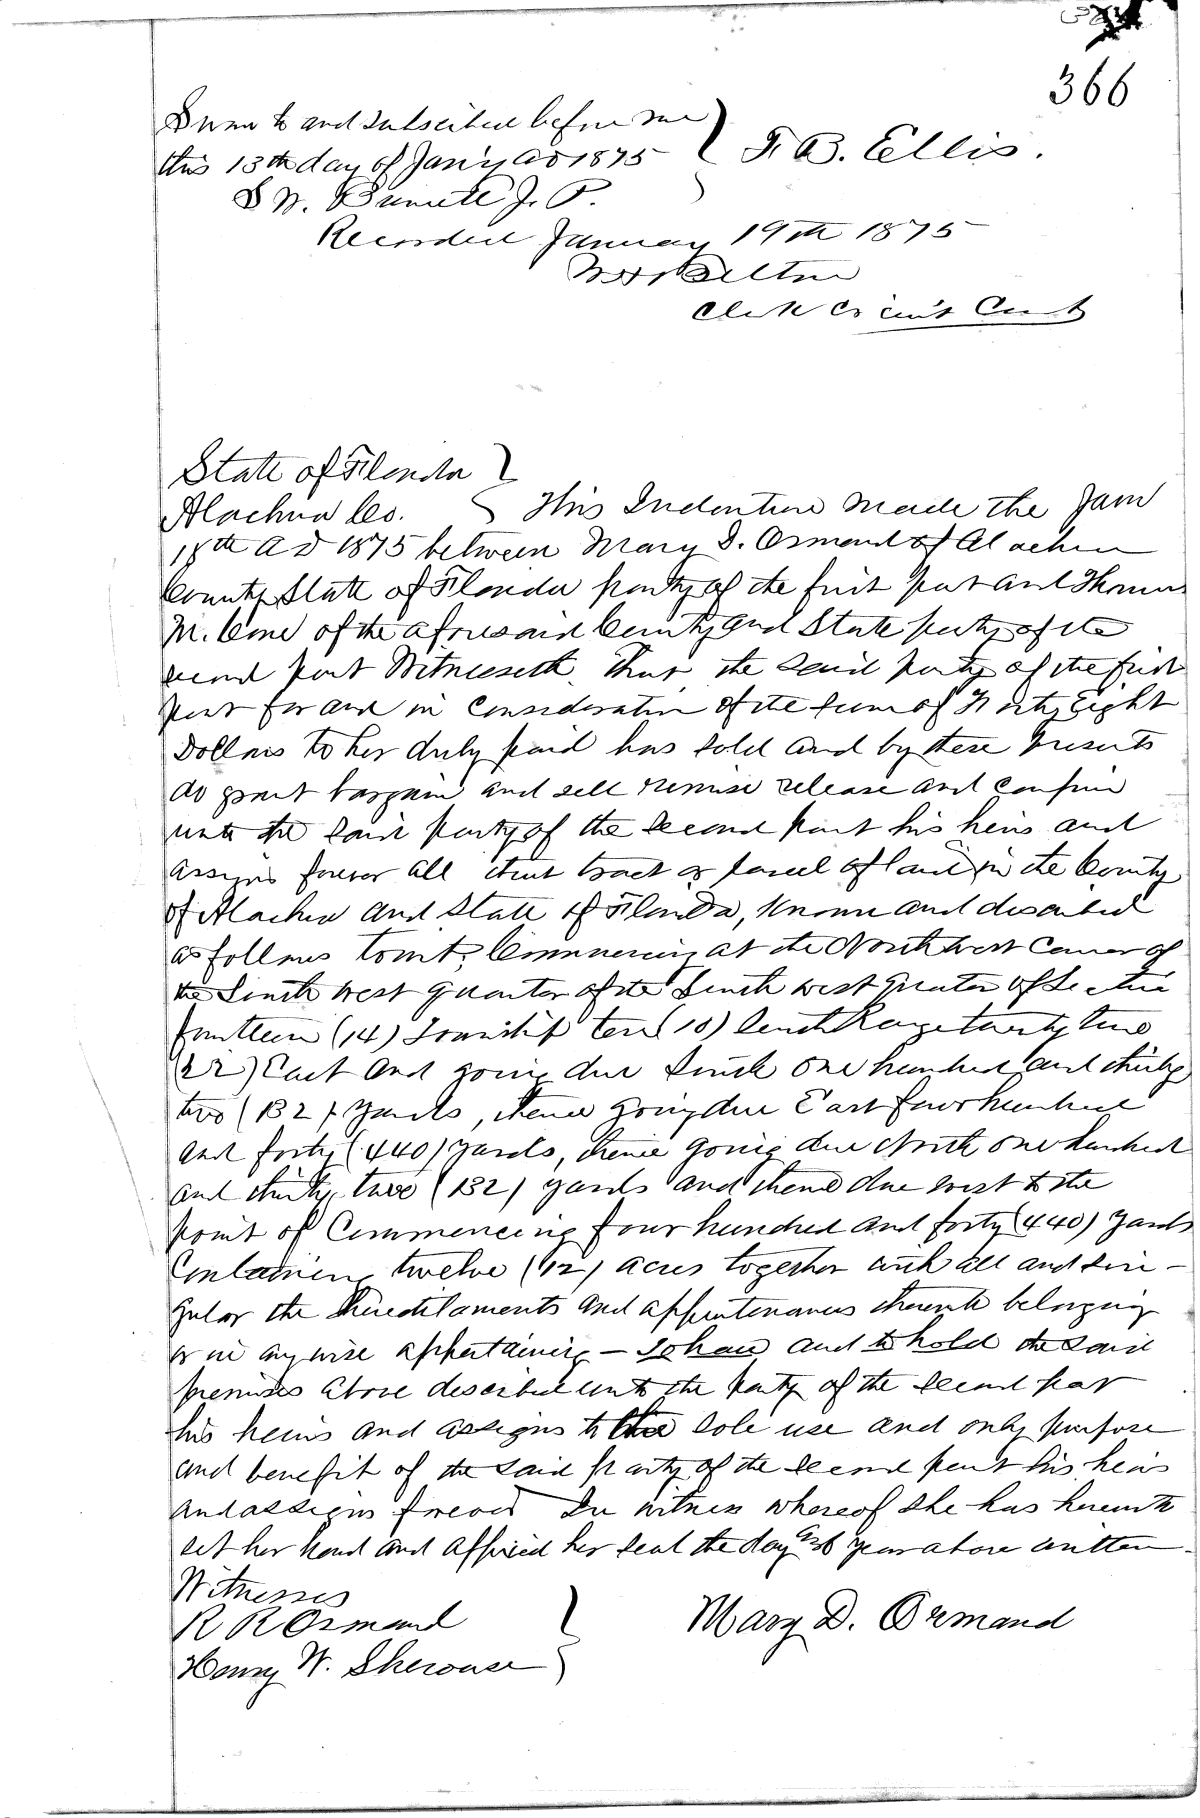 366
Sworn to and subscribed before me
this 13th day of Jan'y AD 1875 } F. B. Ellis.
S W. Burnett J. P.
Recorded January 19th 1875
Clerk Circuit Court
State of Florida }
Alachua Co. } This Indenture made the Jany
18th A D 1875 between Mary D. Ormand of Alachua
County State of Florida party of the first part and Thomas
M. Cone of the aforesaid County and State party of the
second part Witnesseth. That the said party of the first
part for and in consideration of the sum of Forty Eight
Dollars to her duly paid has sold and by these presents
do grant bargain and sell remise release and confirm
unto the said party of the second part his heirs and
assigns forever all that tract or parcel of land in the County
of Alachua and State of Florida, known and described
as follows towit; Commencing at the North West corner of
the South West quarter of the South West quarter of Section
fourteen (14) Township ten (10) South Range twenty two
(22) East and going due South one hundred and thirty
two (132) yards, thence going due East four hundred
and forty (440) yards, thence going due North one hundred
and thirty two (132) yards and thence due west to the
point of Commencing four hundred and forty (440) yards
Containing twelve (12) acres together with all and sin-
gular the hereditaments and appurtenances thereunto belonging
or in any wise appertaining - To have and to hold the said
premises above described unto the party of the second part
his heirs and assigns to the sole use and only purpose
and benefit of the said party of the second part his heirs
and assigns forever In witness whereof she has hereunto
set her hand and affixed her seal the day and year above written.
Witnesses
R R Ormand } Mary D. Ormand
Henry W. Sherouse